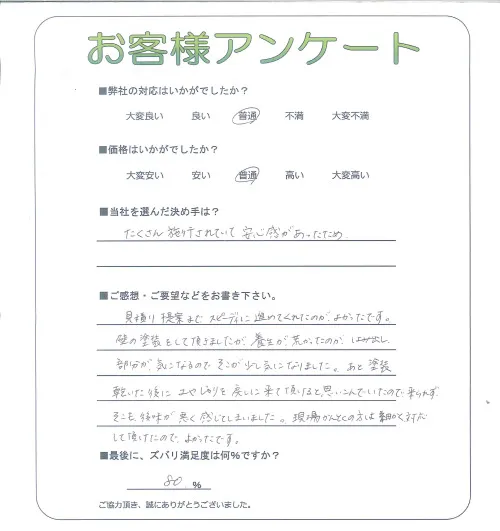 お客様アンケート
■弊社の対応はいかがでしたか?
大変良い 良い 普通 不満 大変不満
■価格はいかがでしたか?
大変安い 安い 普通 高い 大変高い
■当社を選んだ決め手は?
たくさん施行されていて安心感があったため。
■ご感想・ご要望などをお書き下さい。
見積り提案まで スピーディに進めてくれたのが、よかったです。
壁の塗装をして頂きましたが養生が荒かったのか、はみ出し
部分が、気になるので そこが少し気になりました。あと塗装
乾いた後に を戻しに来て頂けると思いこんでいたので来られず
そこも、後味が悪く感じてしまいました。現場かんとくの方は細かく対応
して頂けたので、よかったです。
■最後に、ズバリ満足度は何%ですか?
80 %
ご協力頂き、誠にありがとうございました。